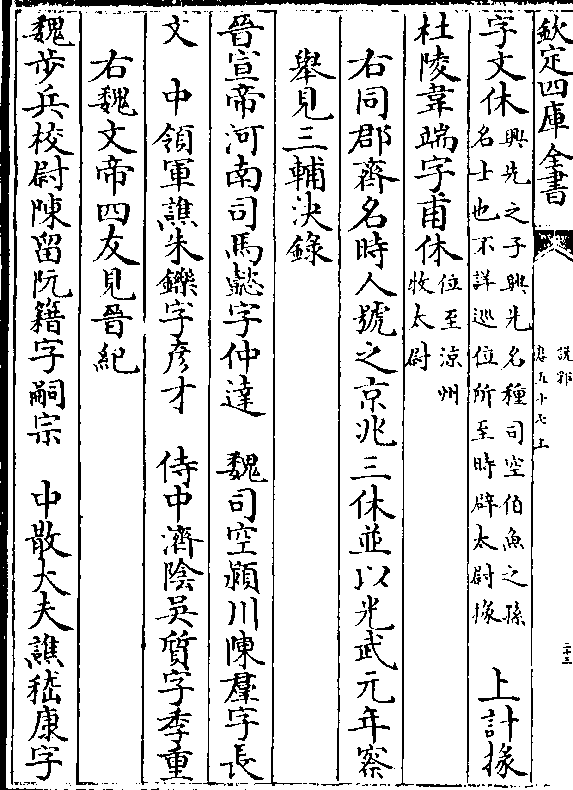 欽定四庫全書
說郛
卷五十七上
二十三
字文休興先之子興先名種司空伯魚之孫名士也不詳巡位所至時辟太尉掾 上計掾
杜陵韋端字甫休位至涼州牧太尉
右同郡齊名時人號之京兆三休並以光武元年察
舉見三輔決錄
晉宣帝河南司馬懿字仲達 魏司空潁川陳羣字長
文 中領軍譙朱鑠字彥才 侍中濟陰吳質字季重
右魏文帝四友見晉紀
魏步兵校尉陳留阮籍字嗣宗 中散大夫譙嵇康字